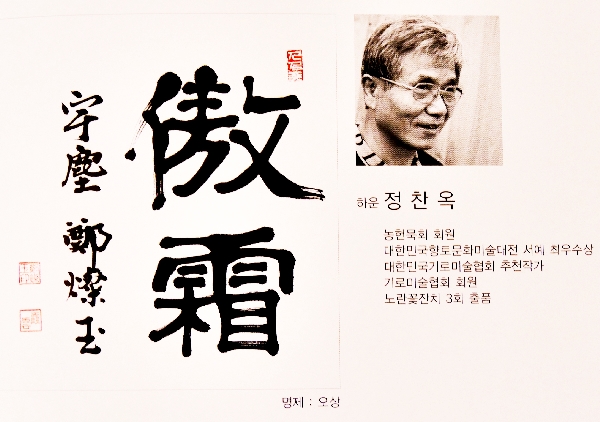 傲霜
宇塵 鄭燦玉
하운 정찬옥
농헌묵회 회원
대한민국향토문화미술대전 서예 최우수상
대한민국기로미술협회 추천작가
기로미술협회 회원
노란꽃잔치 3회 출품
명제 : 오상